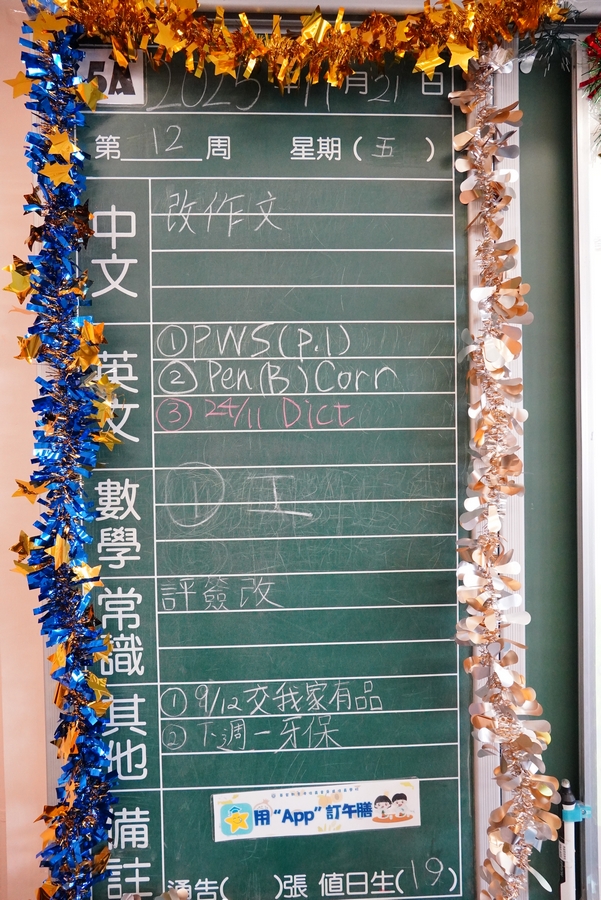 5A 2025年11月21日
第 12 周 星期(五)
中文
改作文
英文
①PWS(p.1)
② Pen(B) Corr
③ 24/11 Dict
數學
常識
評簽改
其他
① 9/12交我家有品
② 下週一牙保
備註
用“App”訂午膳
通告( )張 值日生(19)